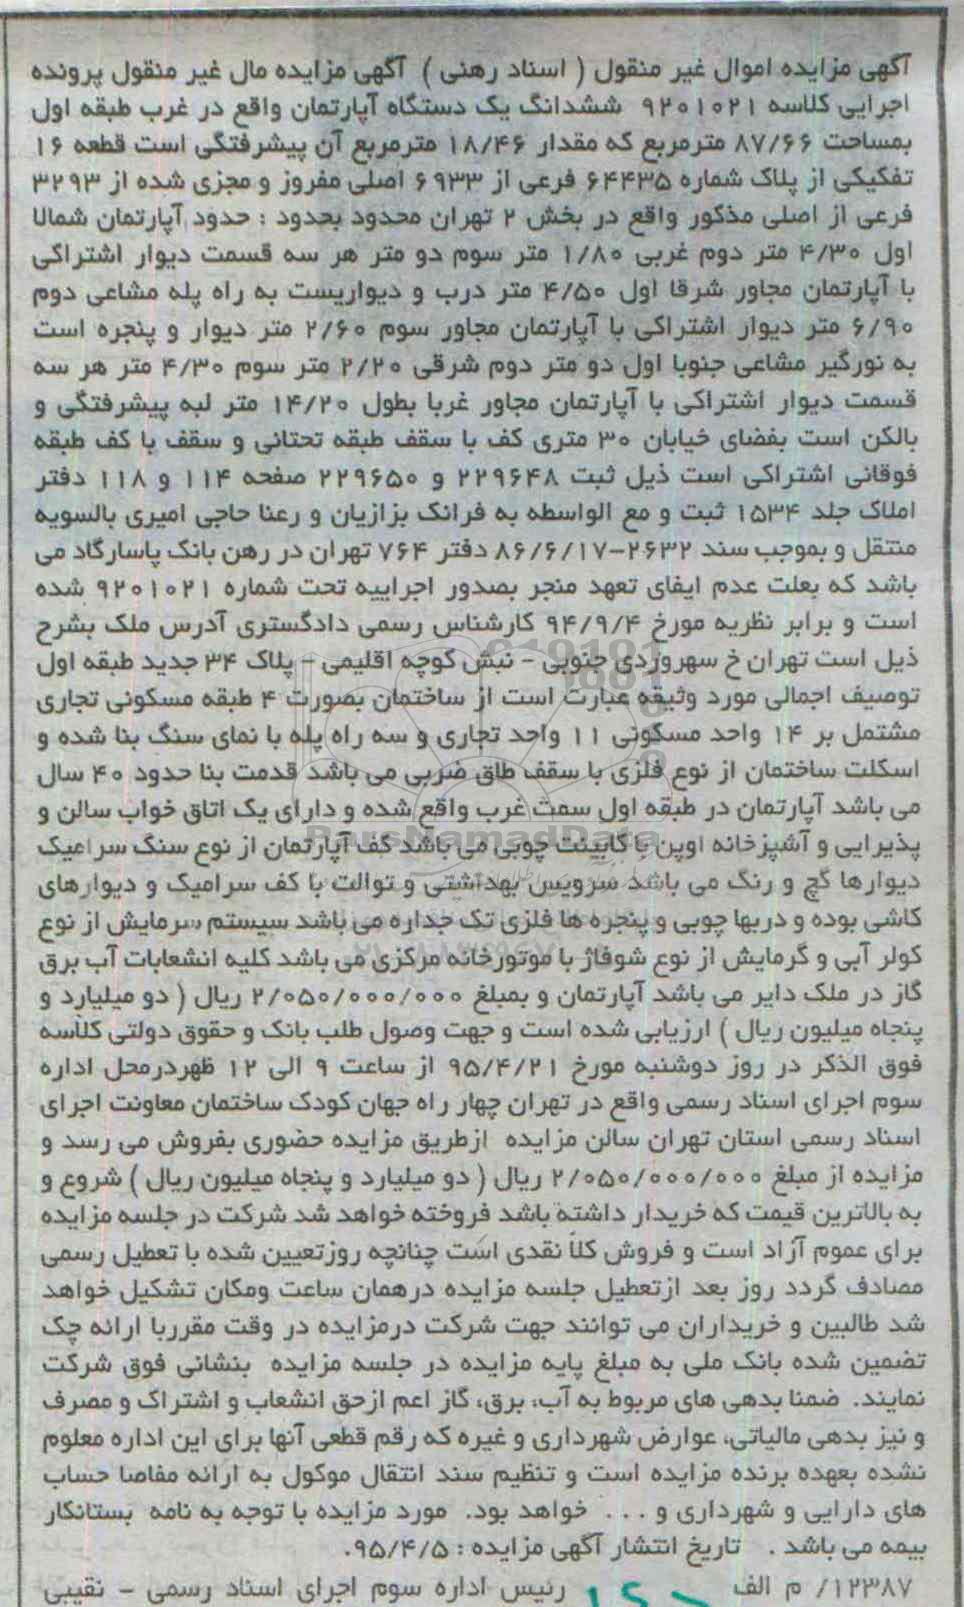 آگهی مزایده اموال غیر منقول ( اسناد رهنی ) آگهی مزایده مال غیر منقول پرونده
اجرایی کلاسه ۹۲۰۱۰۲۱ ششدانگ یک دستگاه آپارتمان واقع در غرب طبقه اول
بمساحت ۸۷/۶۶ مترمربع که مقدار ۱۸/۴۶ مترمربع آن پیشرفتگی است قطعه ۱۶
تفکیکی از پلاک شماره ۶۴۴۳۵ فرعی از ۶۹۳۳ اصلی مفروز و مجزی شده از ۳۲۹۳
فرعی از اصلی مذکور واقع در بخش ۲ تهران محدود بحدود : حدود آپارتمان شمالا
اول ۴/۳۰ متر دوم غربی ۱/۸۰ متر سوم دو متر هر سه قسمت دیوار اشتراکی
با آپارتمان مجاور شرقا اول ۴/۵۰ متر درب و دیواریست به راه پله مشاعی دوم
۶/۹۰ متر دیوار اشتراکی با آپارتمان مجاور سوم ۲/۶۰ متر دیوار و پنجره است
به نورگیر مشاعی جنوبا اول دو متر دوم شرقی ۲/۲۰ متر سوم ۴/۳۰ متر هر سه
قسمت دیوار اشتراکی با آپارتمان مجاور غربا بطول ۱۴/۲۰ متر لبه پیشرفتگی و
بالکن است بفضای خیابان ۳۰ متری کف با سقف طبقه تحتانی و سقف با کف طبقه
فوقانی اشتراکی است ذیل ثبت ۲۲۹۶۴۸ و ۲۲۹۶۵۰ صفحه ۱۱۴ و ۱۱۸ دفتر
املاک جلد ۱۵۳۴ ثبت و مع الواسطه به فرانک بزازیان و رعنا حاجی امیری بالسویه
منتقل و بموجب سند ۲۶۳۲-۸۶/۶/۱۷ دفتر ۷۶۴ تهران در رهن بانک پاسارگاد می
باشد که بعلت عدم ایفای تعهد منجر بصدور اجراییه تحت شماره ۹۲۰۱۰۲۱ شده
است و برابر نظریه مورخ ۹۴/۹/۴ کارشناس رسمی دادگستری آدرس ملک بشرح
ذیل است تهران خ سهروردی جنوبی - نبش کوچه اقلیمی - پلاک ۳۴ جدید طبقه اول
توصیف اجمالی مورد وثیقه عبارت است از ساختمان بصورت ۴ طبقه مسکونی تجاری
مشتمل بر ۱۴ واحد مسکونی ۱۱ واحد تجاری و سه راه پله با نمای سنگ بنا شده و
اسکلت ساختمان از نوع فلزی با سقف طاق ضربی می باشد قدمت بنا حدود ۴۰ سال
می باشد آپارتمان در طبقه اول سمت غرب واقع شده و دارای یک اتاق خواب سالن و
پذیرایی و آشپزخانه اوپن با کابینت چوبی می باشد کف آپارتمان از نوع سنگ سرامیک
دیوارها گچ و رنگ می باشد سرویس بهداشتی و توالت با کف سرامیک و دیوارهای
کاشی بوده و دربها چوبی و پنجره ها فلزی تک جداره می باشد سیستم سرمایش از نوع
کولر آبی و گرمایش از نوع شوفاژ با موتورخانه مرکزی می باشد کلیه انشعابات آب برق
گاز در ملک دایر می باشد آپارتمان و بمبلغ ۲/۰۵۰/۰۰۰/۰۰۰ ریال ( دو میلیارد و
پنجاه میلیون ریال ) ارزیابی شده است و جهت وصول طلب بانک و حقوق دولتی کلاسه
فوق الذکر در روز دوشنبه مورخ ۹۵/۴/۲۱ از ساعت ۹ الی ۱۲ ظهردرمحل اداره
سوم اجرای اسناد رسمی واقع در تهران چهار راه جهان کودک ساختمان معاونت اجرای
اسناد رسمی استان تهران سالن مزایده ازطریق مزایده حضوری بفروش می رسد و
مزایده از مبلغ ۲/۰۵۰/۰۰۰/۰۰۰ ریال ( دو میلیارد و پنجاه میلیون ریال ) شروع و
به بالاترین قیمت که خریدار داشته باشد فروخته خواهد شد شرکت در جلسه مزایده
برای عموم آزاد است و فروش کلا نقدی است چنانچه روزتعیین شده با تعطیل رسمی
مصادف گردد روز بعد ازتعطیل جلسه مزایده درهمان ساعت ومکان تشکیل خواهد
شد طالبین و خریداران می توانند جهت شرکت درمزایده در وقت مقرربا ارائه چک
تضمین شده بانک ملی به مبلغ پایه مزایده در جلسه مزایده بنشانی فوق شرکت
نمایند. ضمنا بدهی های مربوط به آب، برق، گاز اعم ازحق انشعاب و اشتراک و مصرف
و نیز بدهی مالیاتی، عوارض شهرداری و غیره که رقم قطعی آنها برای این اداره معلوم
نشده بعهده برنده مزایده است و تنظیم سند انتقال موکول به ارائه مفاصا حساب
های دارایی و شهرداری و . . . خواهد بود. مورد مزایده با توجه به نامه بستانکار
بیمه می باشد . تاریخ انتشار آگهی مزایده : ۹۵/۴/۵.
۱۲۳۸۷/ م الف رئیس اداره سوم اجرای اسناد رسمی - نقیبی
ParsNamadData